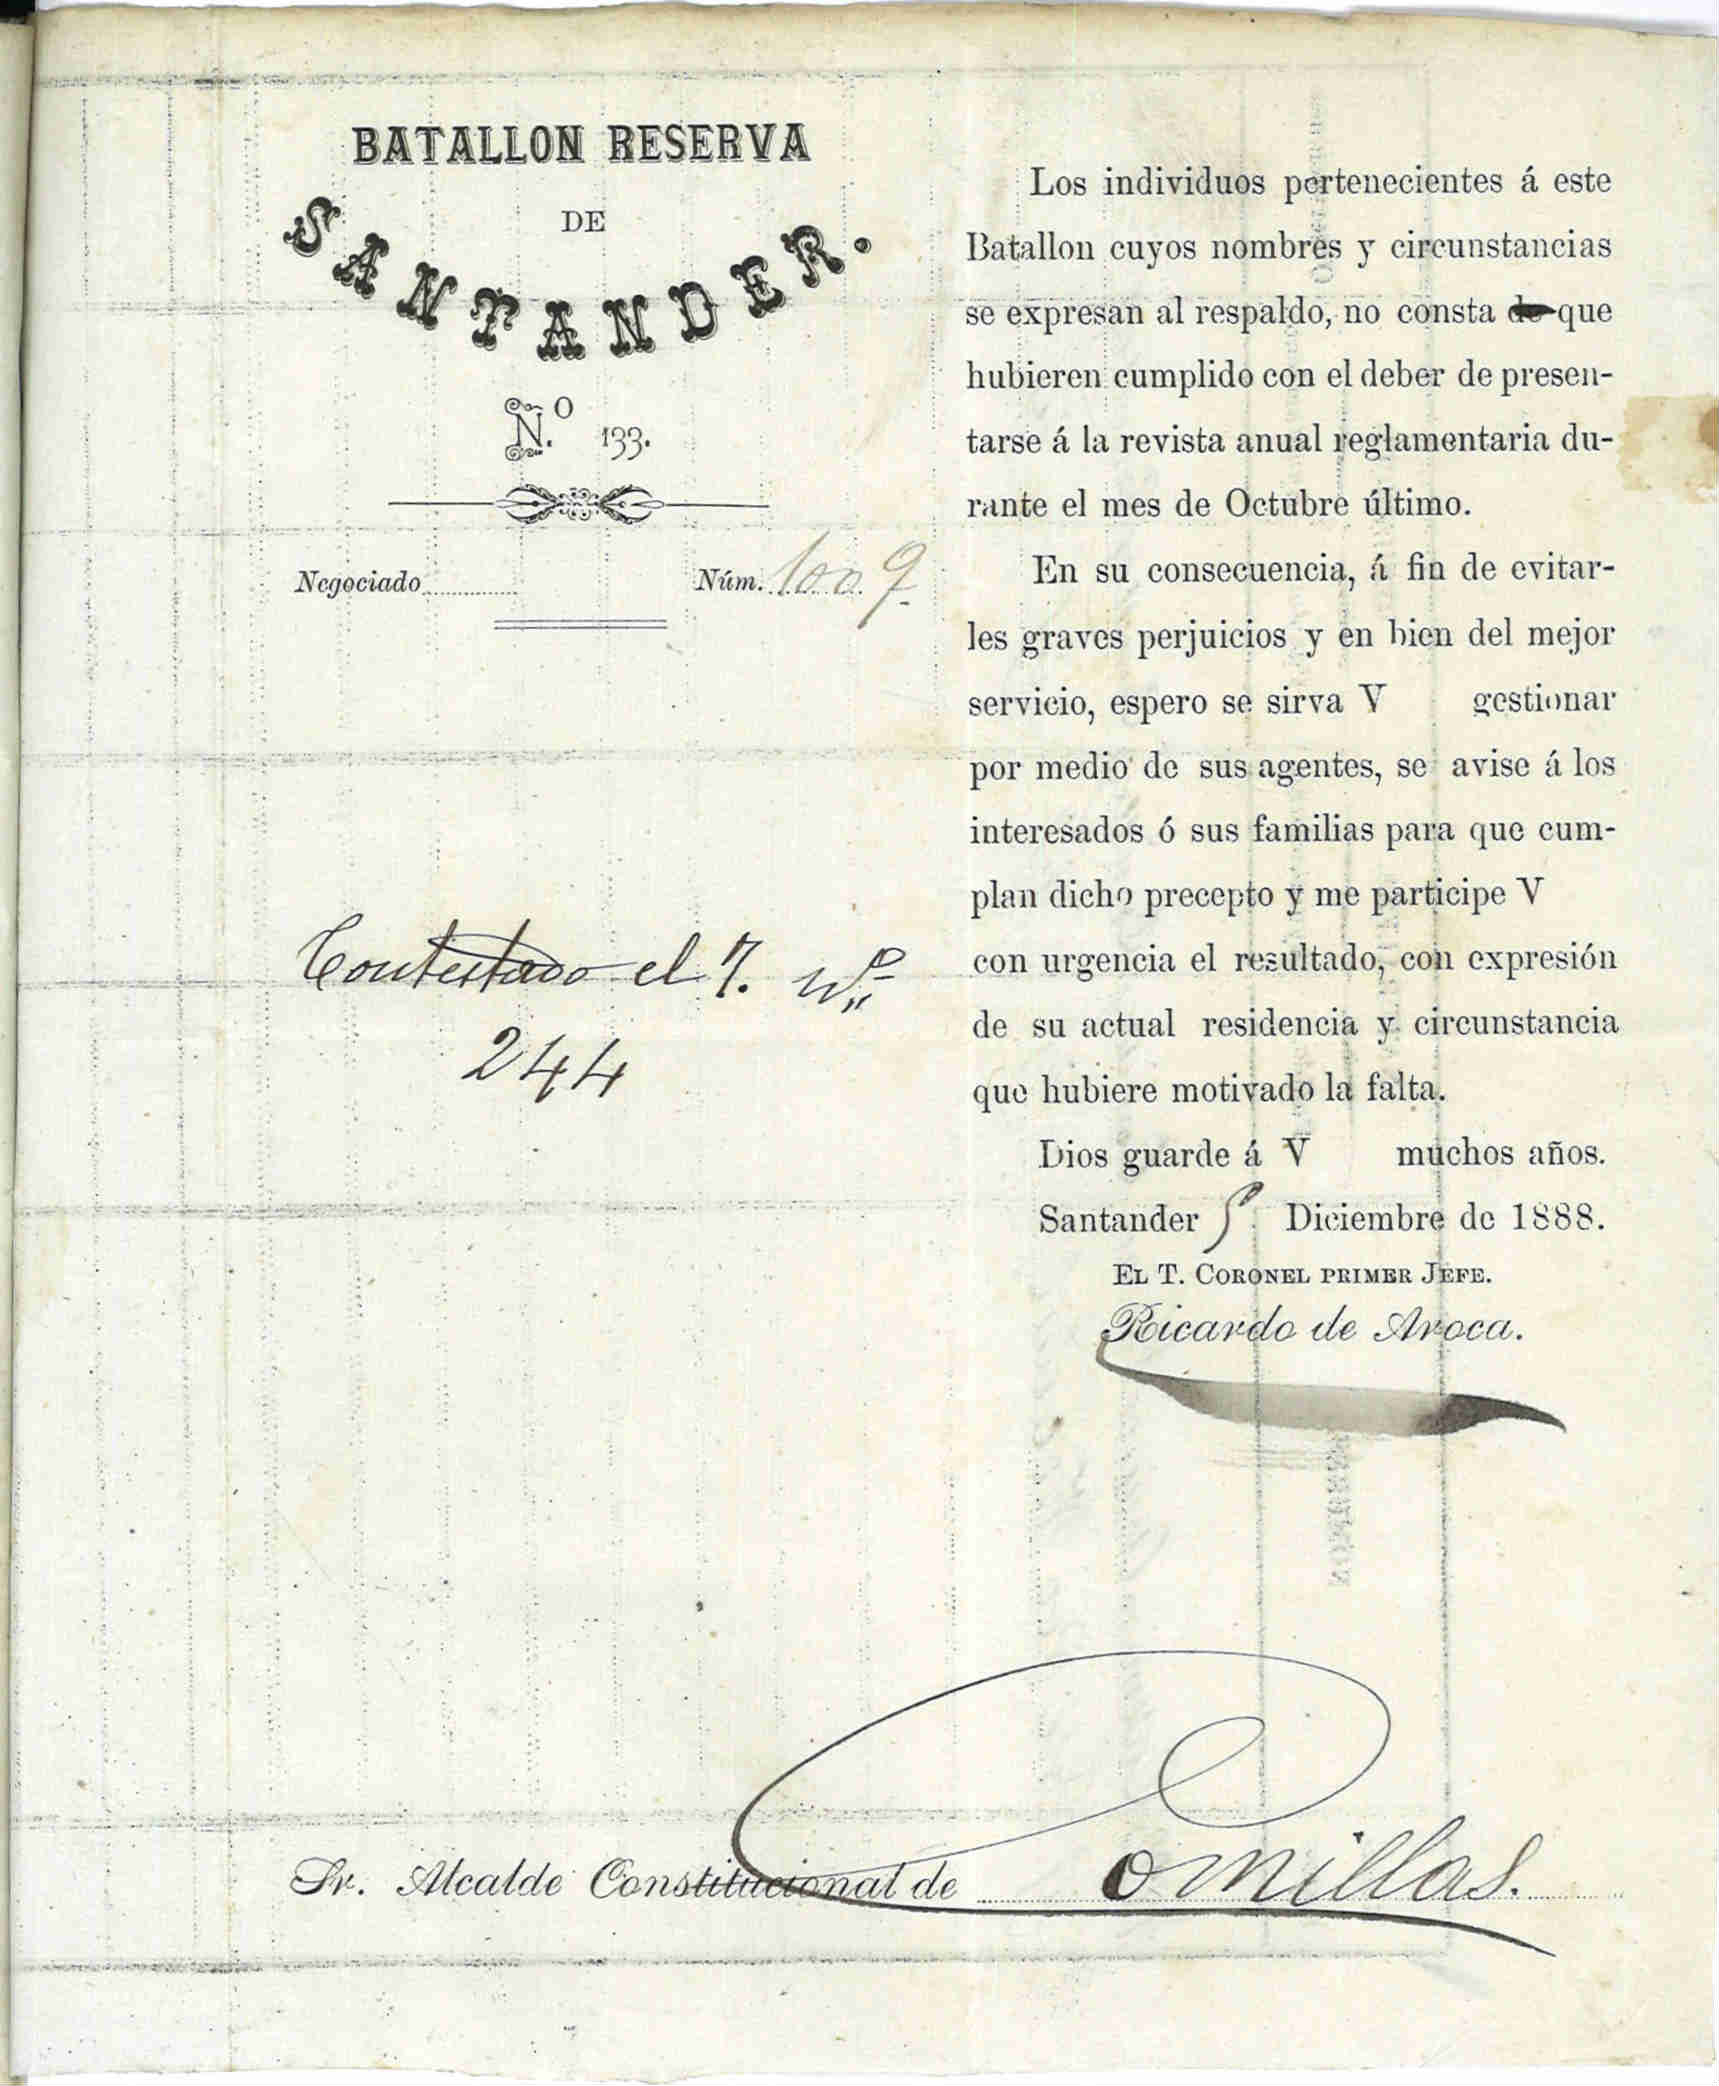 BATALLON RESERVA
DE
SANTANDER.
N.º 133.
Negociado
Núm. 1009
Contestado el 7. Nº
244
Los individuos pertenecientes á este
Batallon cuyos nombres y circunstancias
se expresan al respaldo, no consta de que
hubieren cumplido con el deber de presen-
tarse á la revista anual reglamentaria du-
rante el mes de Octubre último.
En su consecuencia, á fin de evitar-
les graves perjuicios y en bien del mejor
servicio, espero se sirva V gestionar
por medio de sus agentes, se avise á los
interesados ó sus familias para que cum-
plan dicho precepto y me participe V
con urgencia el resultado, con expresión
de su actual residencia y circunstancia
que hubiere motivado la falta.
Dios guarde á V muchos años.
Santander Diciembre de 1888.
EL T. CORONEL PRIMER JEFE.
Ricardo de Aroca.
Sr. Alcalde Constitucional de Comillas.